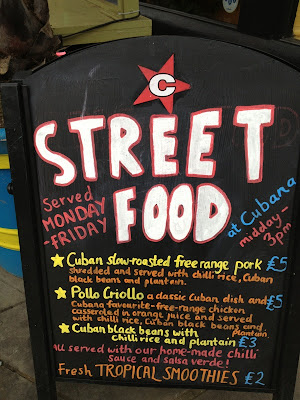 C
STREET
FOOD
Served
MONDAY
-FRIDAY
at Cubana
midday -
3pm
★ Cuban slow-roasted free range pork £5
shredded and served with chilli rice, Cuban
black beans and plantain.
★ Pollo Criollo a classic Cuban dish and £5
Cubana favourite-free-range chicken
casseroled in orange juice and served
with chilli rice, Cuban black beans and
plantain
★ Cuban black beans with
chilli rice and plantain £3
All served with our home-made chilli
sauce and salsa verde!
Fresh TROPICAL SMOOTHIES £2